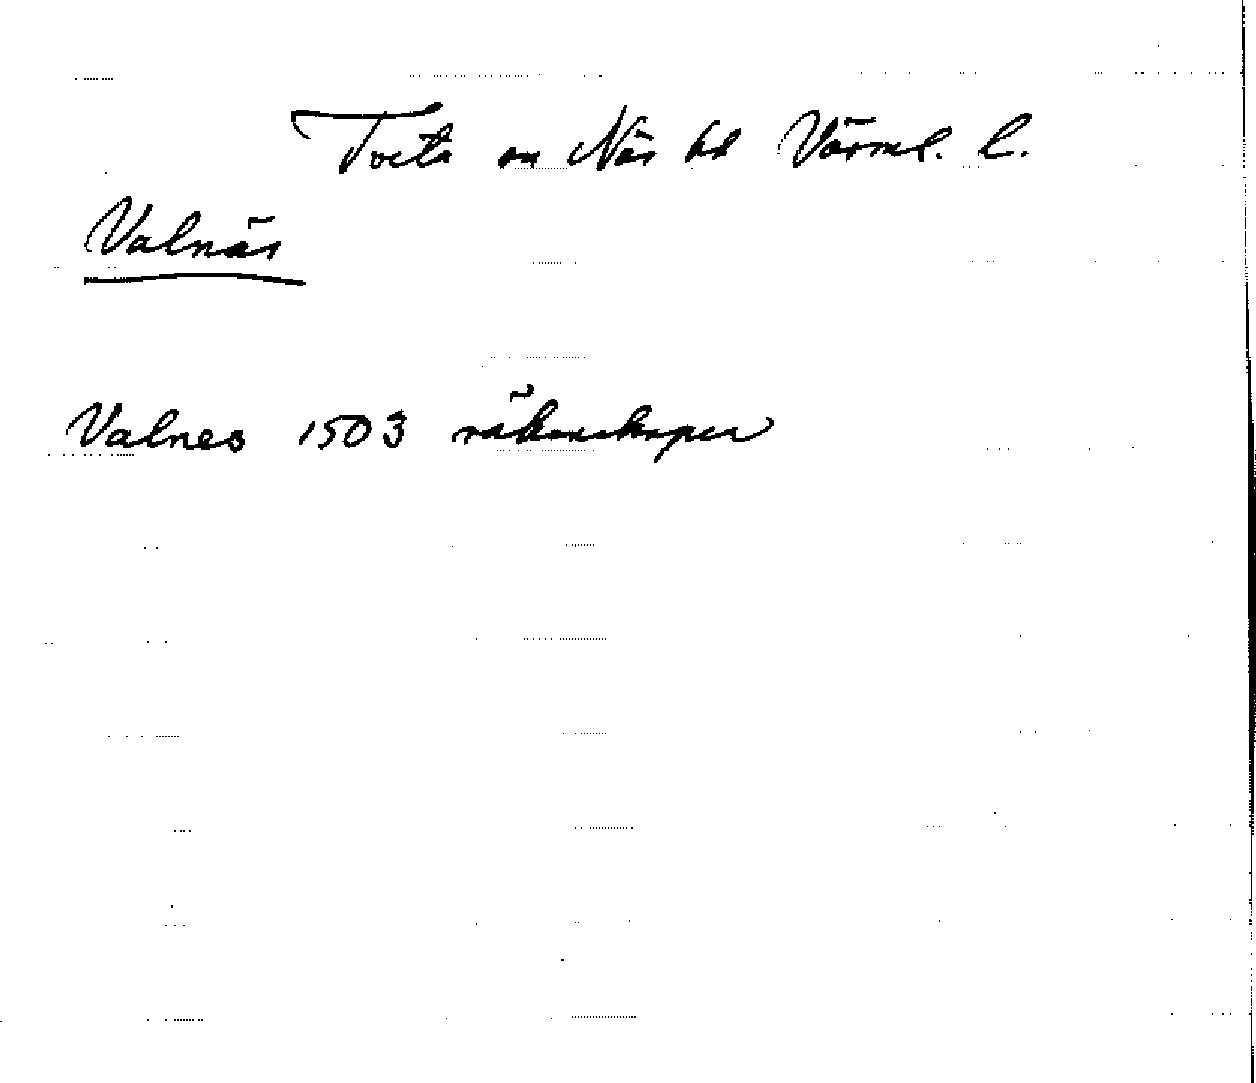 Tveta sn Näs hd Värml. l.
Valnäs
Valnes 1503 räkenskaper